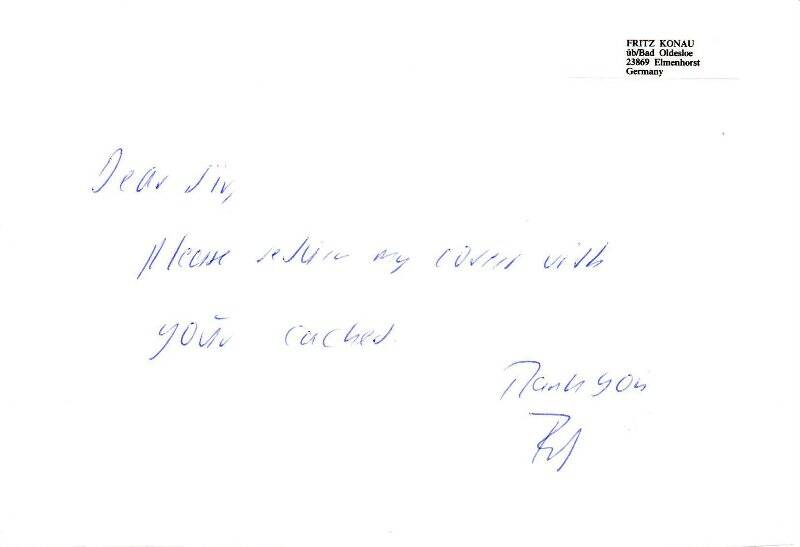 FRITZ KONAU
üb/Bad Oldesloe
23869 Elmenhorst
Germany
Dear Sir,
Please return my cover with
your cachet.
Thank you